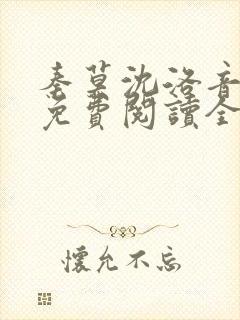 秦墓沈洛音
免費閱讀全
懷允不忘